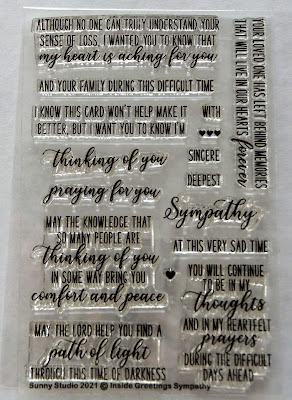 ALTHOUGH NO ONE CAN TRULY UNDERSTAND YOUR
SENSE OF LOSS, I WANTED YOU TO KNOW THAT
my heart is aching for you
AND YOUR FAMILY DURING THIS DIFFICULT TIME
I KNOW THIS CARD WON'T HELP MAKE IT
BETTER, BUT I WANT YOU TO KNOW I'M
WITH
♥♥♥
YOUR LOVED ONE HAS LEFT BEHIND MEMORIES
THAT WILL LIVE IN OUR HEARTS forever
thinking of you
praying for you
SINCERE
DEEPEST
Sympathy
AT THIS VERY SAD TIME
MAY THE KNOWLEDGE THAT
SO MANY PEOPLE ARE
thinking of you
IN SOME WAY BRING YOU
comfort and peace
♥
YOU WILL CONTINUE
TO BE IN MY
thoughts
AND IN MY HEARTFELT
prayers
DURING THE DIFFICULT
DAYS AHEAD
MAY THE LORD HELP YOU FIND A
path of light
THROUGH THIS TIME OF DARKNESS
Sunny Studio 2021 © Inside Greetings Sympathy